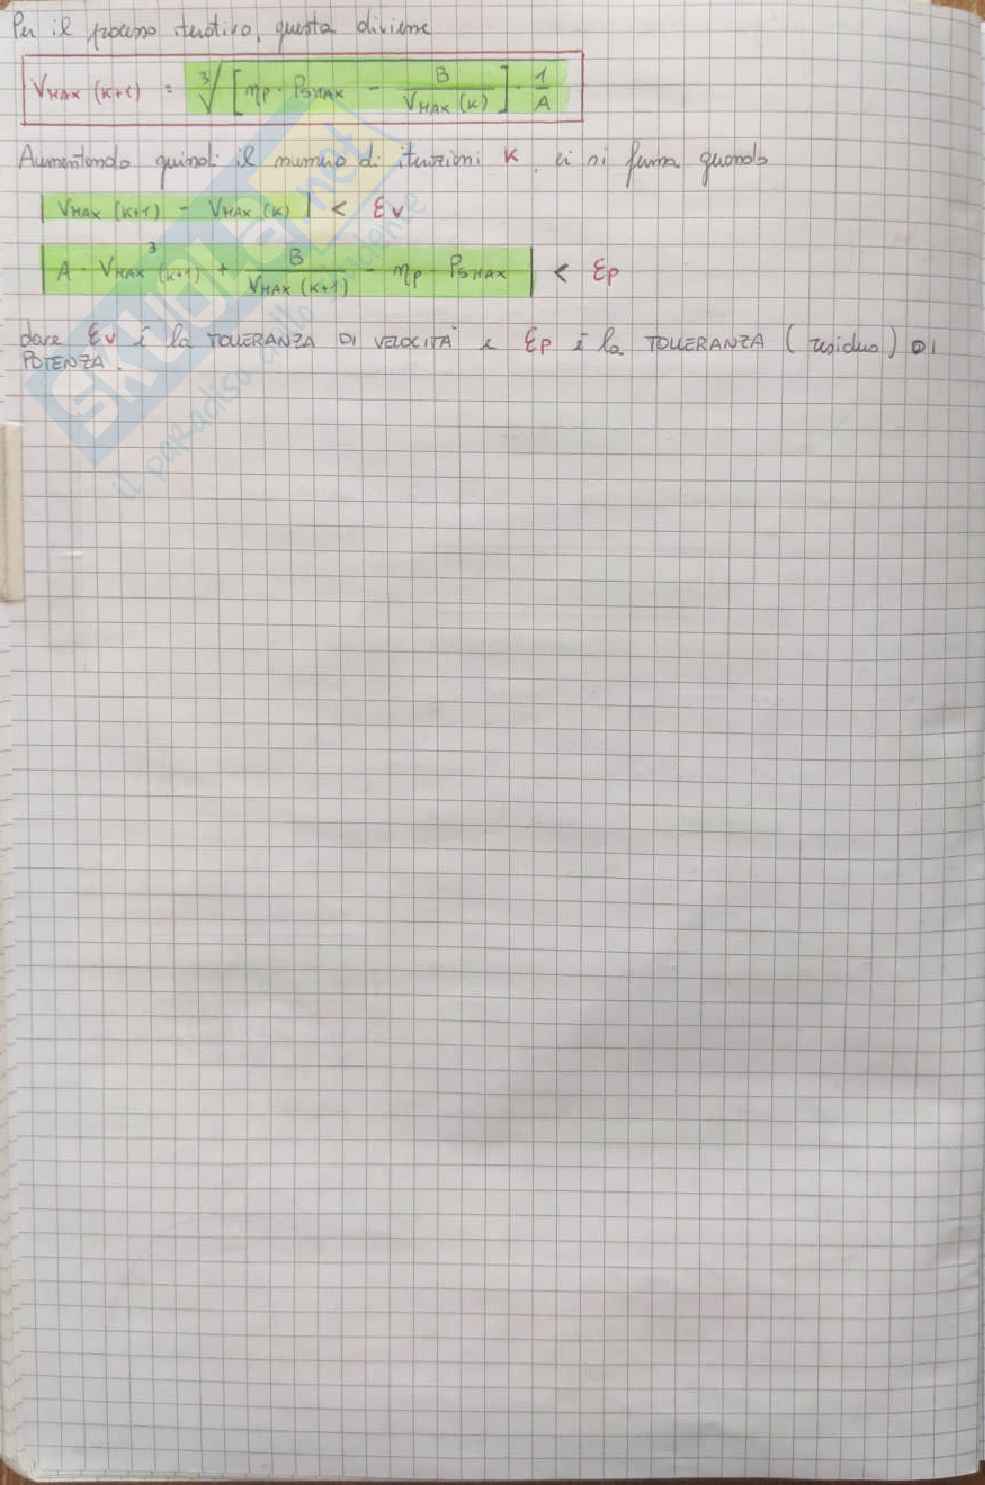 Per il processo iterativo, questa diviene
VMAX (K+1) = ∛[ηp · PSMAX - B/VMAX (K)] · 1/A
Aumentando quindi il numero di iterazioni K, ci si ferma quando
|VMAX (K+1) - VMAX (K)| < εv
|A · VMAX³ (K+1) + B/VMAX (K+1) - ηp PSMAX| < εp
dove εv è la TOLLERANZA DI VELOCITÀ e εp è la TOLLERANZA (residuo) DI
POTENZA.
SKUOLA.net
il paradiso dello studente